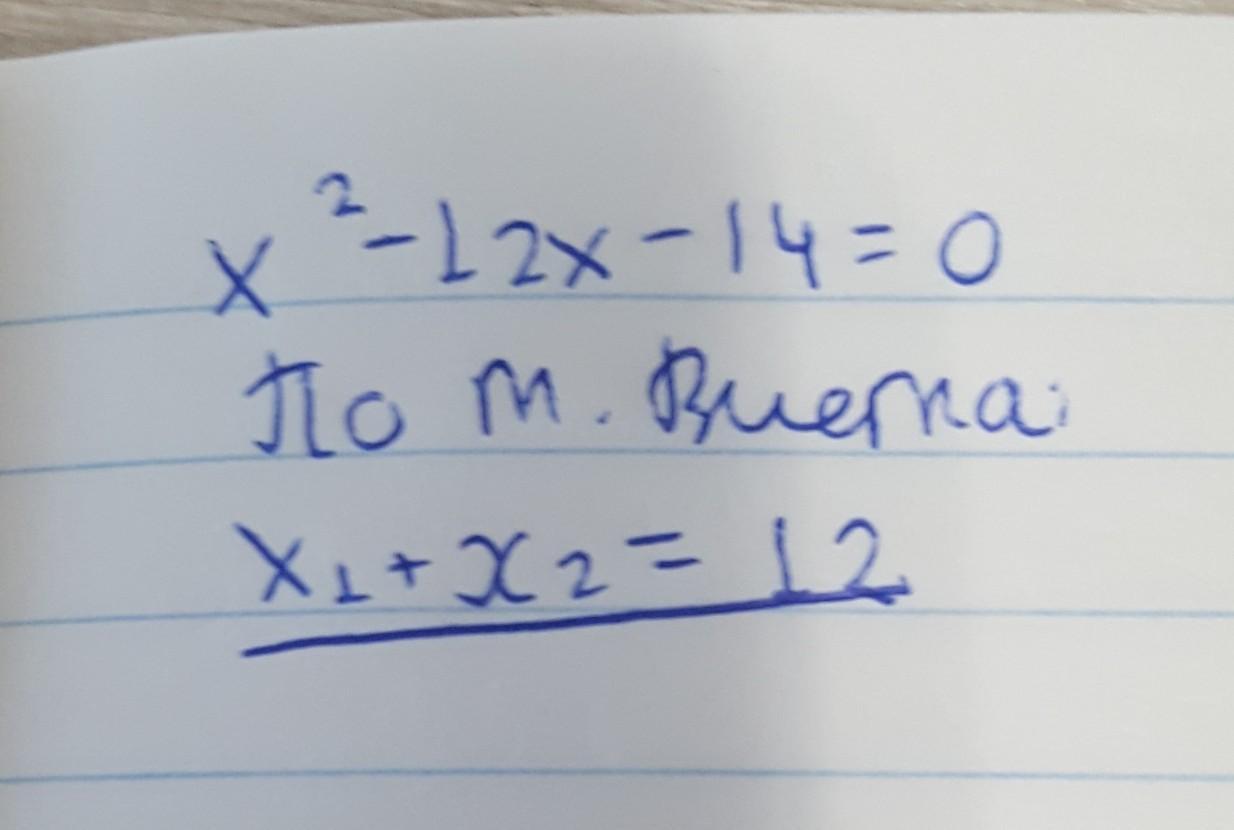 x² - 12x - 14 = 0
По т. Виета:
x₁ + x₂ = 12